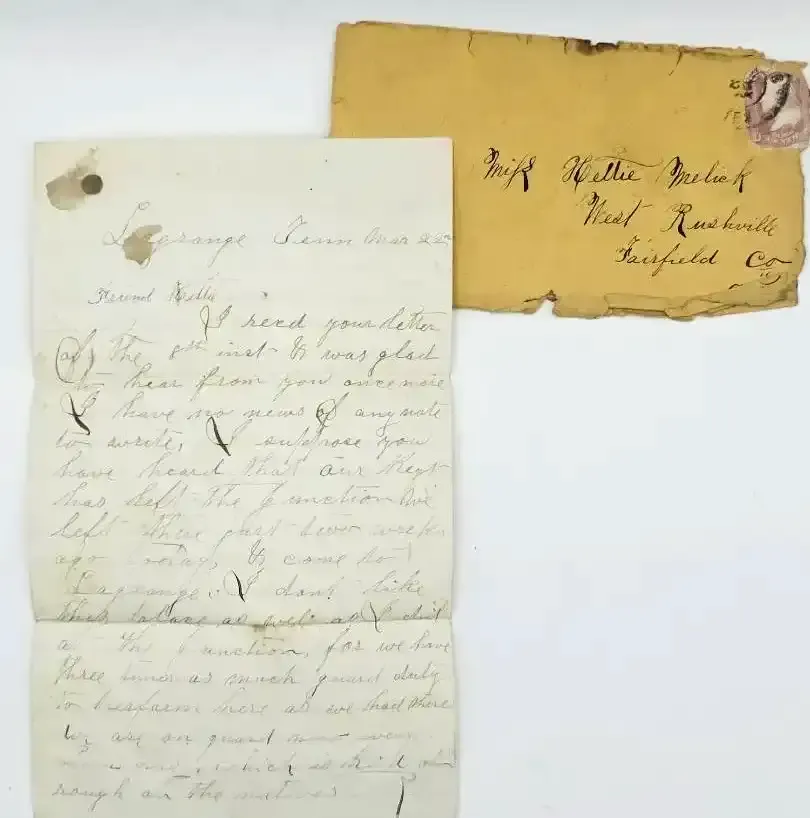 Miss Hettie Melick
West Rushville
Fairfield Co
Lagrange Tenn Mar 22nd
Friend Hettie
I recd your letter
of the 8th inst & was glad
to hear from you once more
I have no news of any note
to write, I suppose you
have heard that our Regt
has left the Junction We
left there just two weeks
ago today, & come to
Lagrange. I dont like
this place as well as I did
at the Junction, for we have
three times as much guard duty
to perform here as we had there
We are on guard now every
which is kind of
rough on the natives